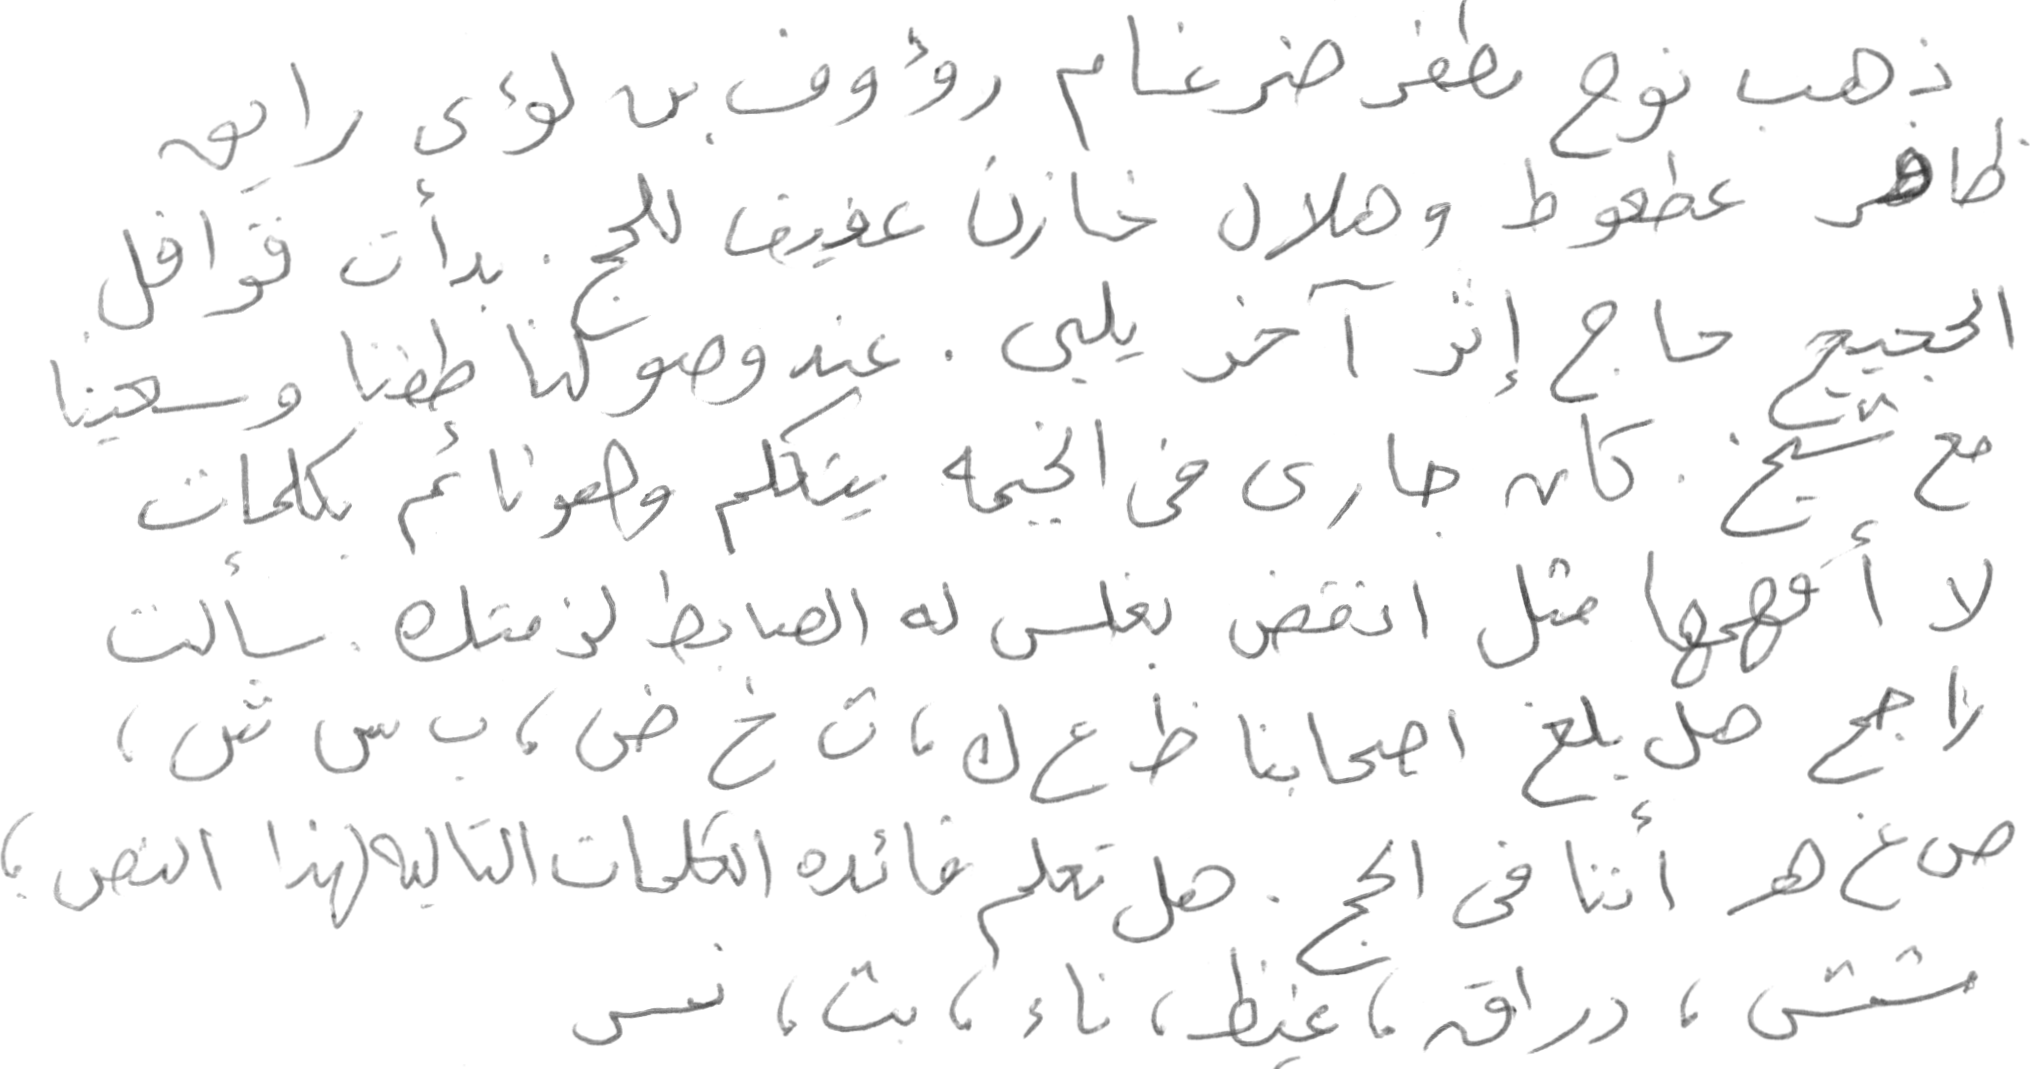 ذهب نوح مظفر ضرغام رؤوف بن لؤى رايق
ظافر عطعوط وهلال خازن عفيف للحج . بدأت قوافل
الحجيج حاج إثر آخر يلبى . عند وصولنا طفنا وسعينا
مع شيخ . كان جارى فى الخيمه يتكلم وهو نائم بكلمات
لا أفهمها مثل انقض نغلس له الضابط لزمتك . سألت
راجح هل بلغ اصحابنا ظ ع ك ، ت خ ض ، ب س ش ،
ص غ هـ أننا فى الحج . هل تعلم فائده الكلمات التاليه لهذا النص ،
مشمش ، دراق ، غيظ ، ناء ، بث ، نفس